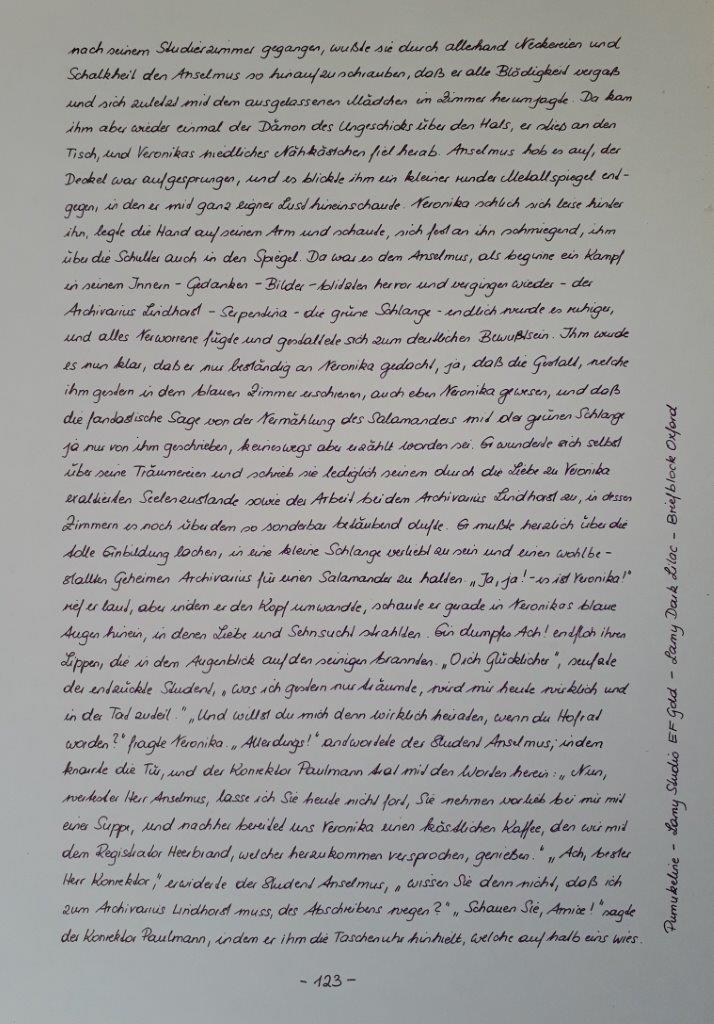 nach seinem Studierzimmer gegangen, wußte sie durch allerhand Neckereien und
Schalkheit den Anselmus so hinaufzuschrauben, daß er alle Blödigkeit vergaß
und sich zuletzt mit dem ausgelassenen Mädchen im Zimmer herumjagte. Da kam
ihm aber wieder einmal der Dämon des Ungeschicks über den Hals, er stieß an den
Tisch, und Veronikas niedliches Nähkästchen fiel herab. Anselmus hob es auf, der
Deckel war aufgesprungen, und es blickte ihm ein kleiner runder Metallspiegel ent-
gegen, in den er mit ganz eigner Lust hineinschaute. Veronika schlich sich leise hinter
ihn, legte die Hand auf seinem Arm und schaute, sich fest an ihn schmiegend, ihm
über die Schulter auch in den Spiegel. Da war es dem Anselmus, als beginne ein Kampf
in seinem Innern - Gedanken - Bilder - blitzten hervor und vergingen wieder - der
Archivarius Lindhorst - Serpentina - die grüne Schlange - endlich wurde es ruhiger,
und alles Verworrene fügte und gestaltete sich zum deutlichen Bewußtsein. Ihm wurde
es nun klar, daß er nur beständig an Veronika gedacht, ja, daß die Gestalt, welche
ihm gestern in dem blauen Zimmer erschienen, auch eben Veronika gewesen, und daß
die fantastische Sage von der Vermählung des Salamanders mit der grünen Schlange
ja nur von ihm geschrieben, keineswegs aber erzählt worden sei. Er wunderte sich selbst
über seine Träumereien und schrieb sie lediglich seinem durch die Liebe zu Veronika
exaltierten Seelenzustande sowie der Arbeit bei dem Archivarius Lindhorst zu, in dessen
Zimmern es noch überdem so sonderbar betäubend dufte. Er mußte herzlich über die
tolle Einbildung lachen, in eine kleine Schlange verliebt zu sein und einen wohlbe-
stallten Geheimen Archivarius für einen Salamander zu halten. „Ja, ja! - es ist Veronika!"
rief er laut, aber indem er den Kopf umwandte, schaute er gerade in Veronikas blaue
Augen hinein, in denen Liebe und Sehnsucht strahlten. Ein dumpfes Ach! entfloh ihren
Lippen, die in dem Augenblick auf den seinigen brannten. „O ich Glücklicher", seufzte
der entzückte Student, „was ich gestern nur träumte, wird mir heute wirklich und
in der Tat zuteil." „Und willst du mich denn wirklich heiraten, wenn du Hofrat
worden?" fragte Veronika. „Allerdings!" antwortete der Student Anselmus; indem
knarrte die Tür, und der Konrektor Paulmann trat mit den Worten herein: „Nun,
wertester Herr Anselmus, lasse ich Sie heute nicht fort, Sie nehmen vorlieb bei mir mit
einer Suppe, und nachher bereitet uns Veronika einen köstlichen Kaffee, den wir mit
dem Registrator Heerbrand, welcher herzukommen versprochen, genießen." „Ach, bester
Herr Konrektor," erwiderte der Student Anselmus, „wissen Sie denn nicht, daß ich
zum Archivarius Lindhorst muss, des Abschreibens wegen?" „Schauen Sie, Amice!" sagte
der Konrektor Paulmann, indem er ihm die Taschenuhr hinhielt, welche auf halb eins wies.
- 123 -
Pumukeline - Lamy Studio EF Gold - Lamy Dark Lilac - Briefblock Oxford